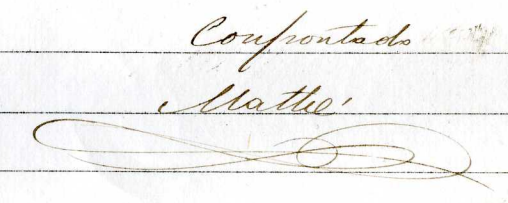 Confrontado
Mathé